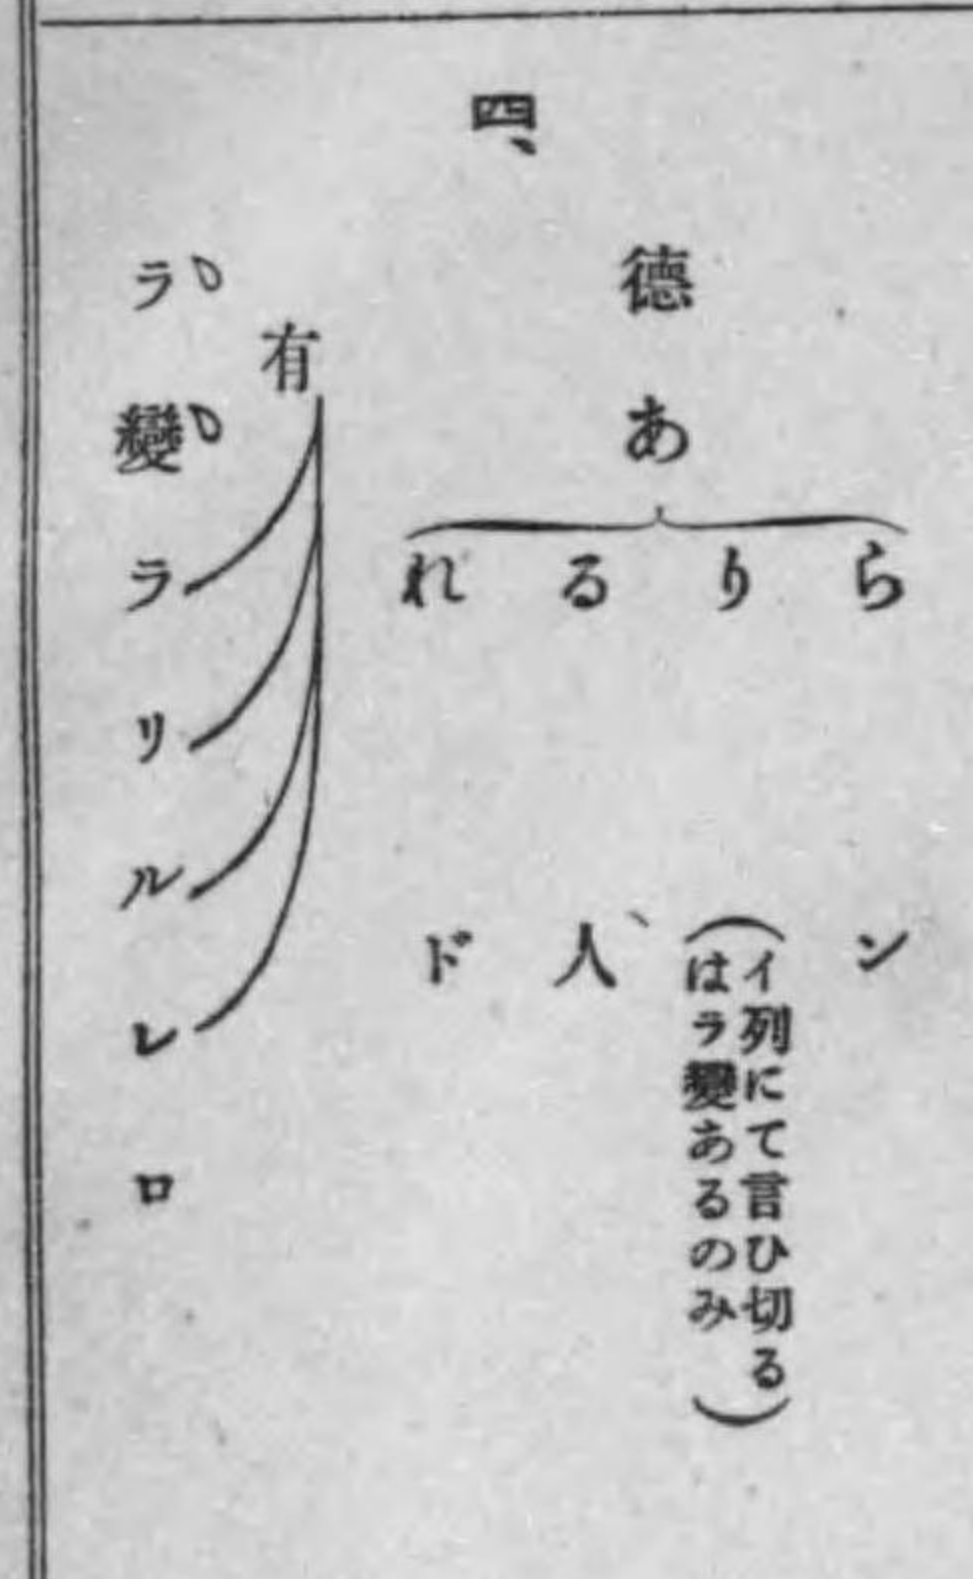 四、
徳あ
らン
り(イ列にて言ひ切る
はラ變あるのみ)
る人、
れド
有
ラ變ラリルレロ